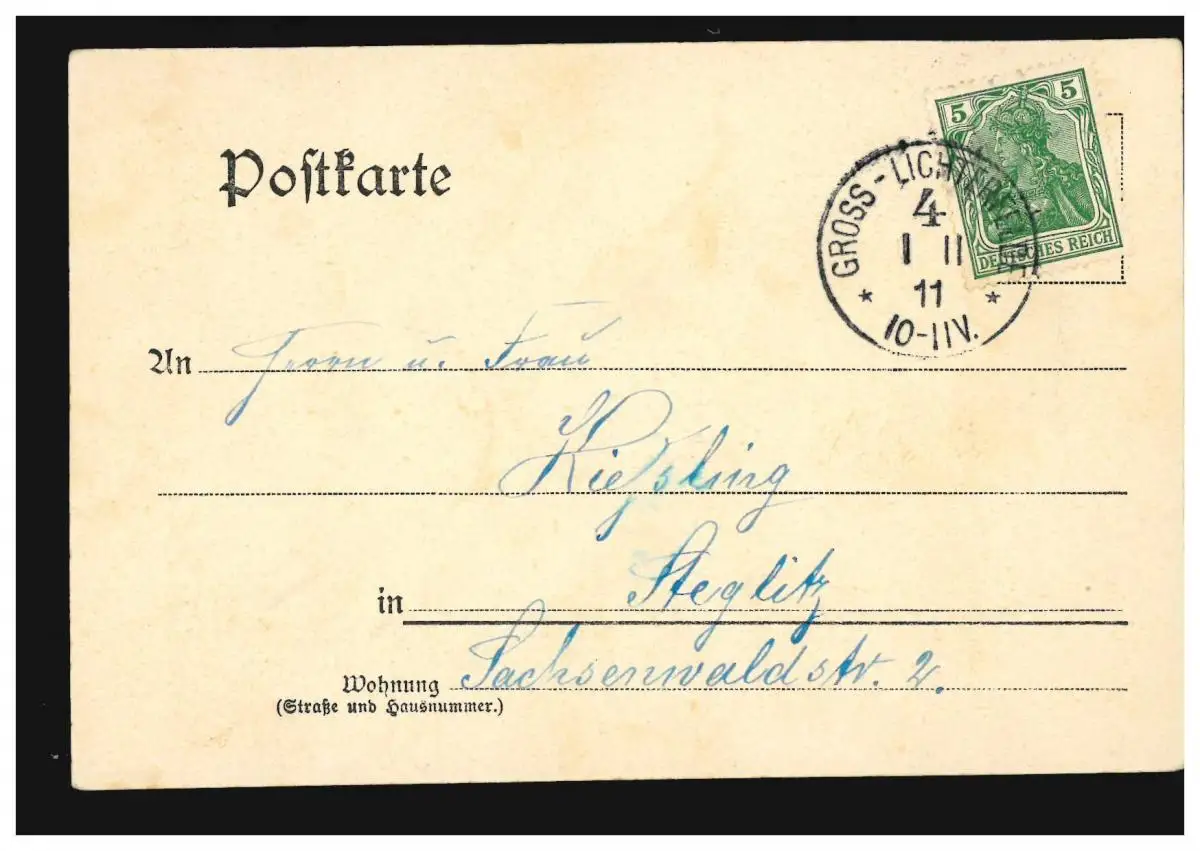 Postkarte
5 5
DEUTSCHES REICH
GROSS-LICHTERFELDE
4
1 11
11
* *
10-11V.
An Herrn u. Frau
Kießling
in Steglitz
Wohnung Sachsenwaldstr. 2.
(Straße und Hausnummer.)